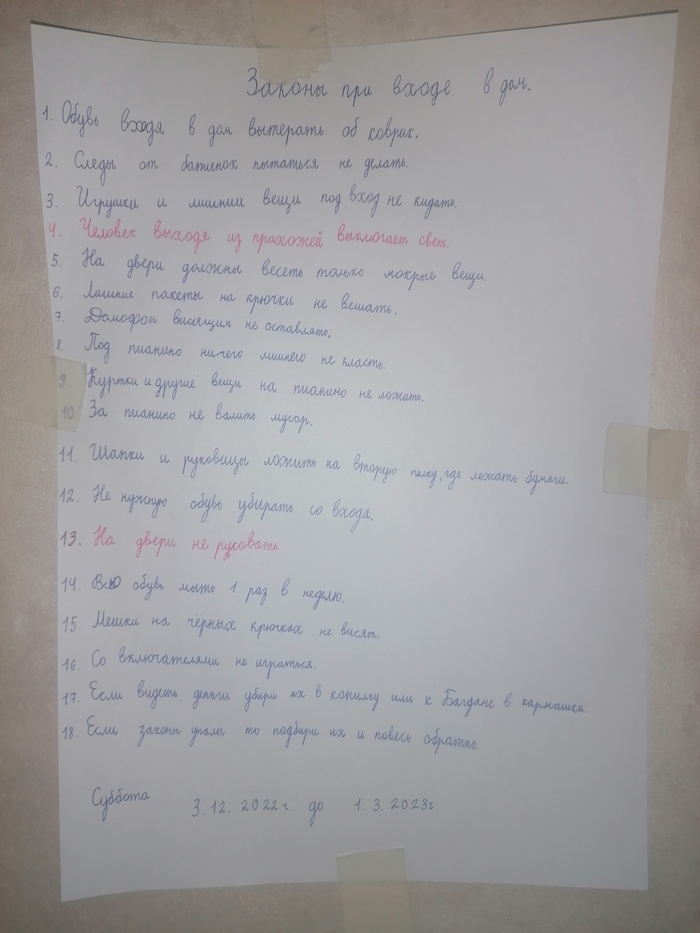 Законы при входе в дом.
1. Обувь входя в дом вытерать об коврик.
2. Следы от батинок пытаться не делать.
3. Игрушки и лишнии вещи под вход не кидать.
4. Человек выходя из прихожей выключает свет.
5. На двери должны весеть только мокрые вещи.
6. Лишние пакеты на крючки не вешать.
7. Домофон висящим не оставлять.
8. Под пианино ничего лишнего не класть.
9. Куртки и другие вещи на пианино не ложить.
10. За пианино не валить мусор.
11. Шапки и руковицы ложить на вторую полку, где лежать бумаги.
12. Не нужную обувь убирать со входа.
13. На двери не рисовать.
14. Всю обувь мыть 1 раз в неделю.
15. Мешки на чёрных крючках не висят.
16. Со включателями не играться.
17. Если видеть деньги убири их в копилку или к Багдане в кармашка
18. Если законы упали то подбири их и повесь обратно.
Суббота 3.12.2022г. до 1.3.2023г.